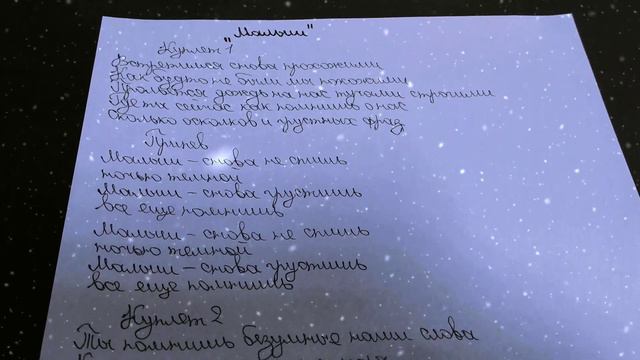 "Малыш"
Куплет 1
Встретимся снова прохожими
Как будто не были мы похожими
Прольётся дождь на нас тучами строгими
Где ты сейчас как помнишь о нас
Сколько осколков и грустных фраз
Припев
Малыш - снова не спишь
ночью темной
Малыш - снова грустишь
все еще помнишь
Малыш - снова не спишь
ночью темной
Малыш - снова грустишь
все еще помнишь
Куплет 2
Ты помнишь безумные нами слова